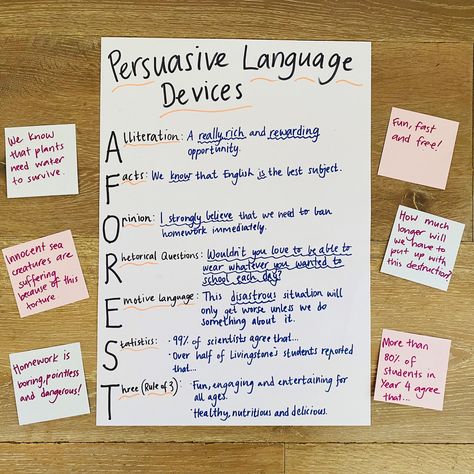 Persuasive Language
Devices
Alliteration: A really rich and rewarding
opportunity.
Facts: We know that English is the best subject.
Opinion: I strongly believe that we need to ban
homework immediately.
Rhetorical Questions: Wouldn't you love to be able to
wear whatever you wanted to
school each day?
Emotive Language: This disastrous situation will
only get worse unless we do
something about it.
Statistics: · 99% of scientists agree that...
· Over half of Livingstone's students reported
that...
Three (Rule of 3): · Fun, engaging and entertaining for
all ages.
· Healthy, nutritious and delicious.
We know
that plants
need water
to survive.
Innocent sea
creatures are
suffering
because of this
torture.
Homework is
boring, pointless
and dangerous!
Fun, fast
and free!
How much
longer will
we have to
put up with
this destruction?
More than
80% of
students in
Year 4 agree
that...